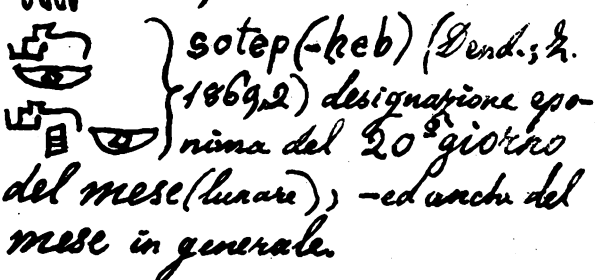 sotep(-heb) (Dend.; Z.
1869,2) designazione epo-
nima del 20º giorno
del mese (lunare), –ed anche del
mese in generale.